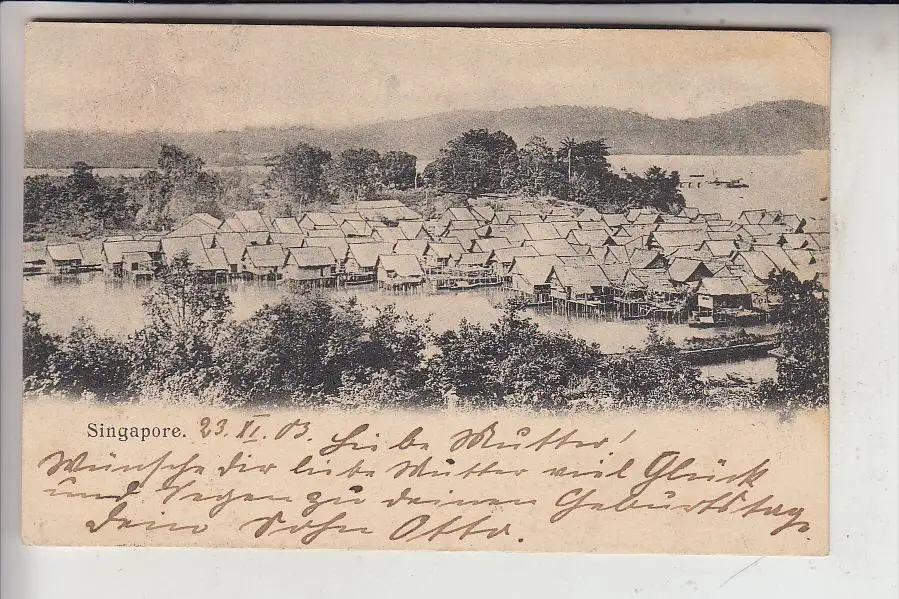 Singapore. 23. XI. 03. Liebe Mutter!
Wünsche dir liebe Mutter viel Glück
und Segen zu deinem Geburtstage
dein Sohn Otto.